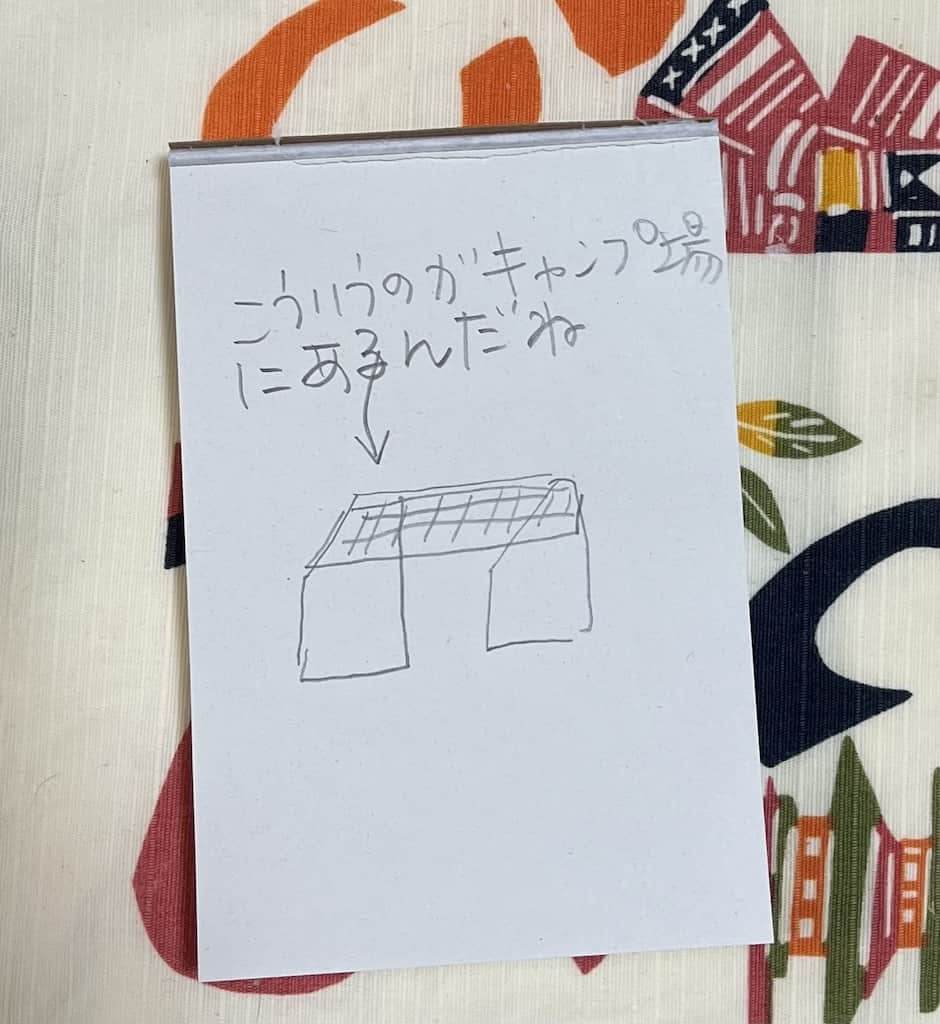 こういうのがキャンプ場
にあるんだね